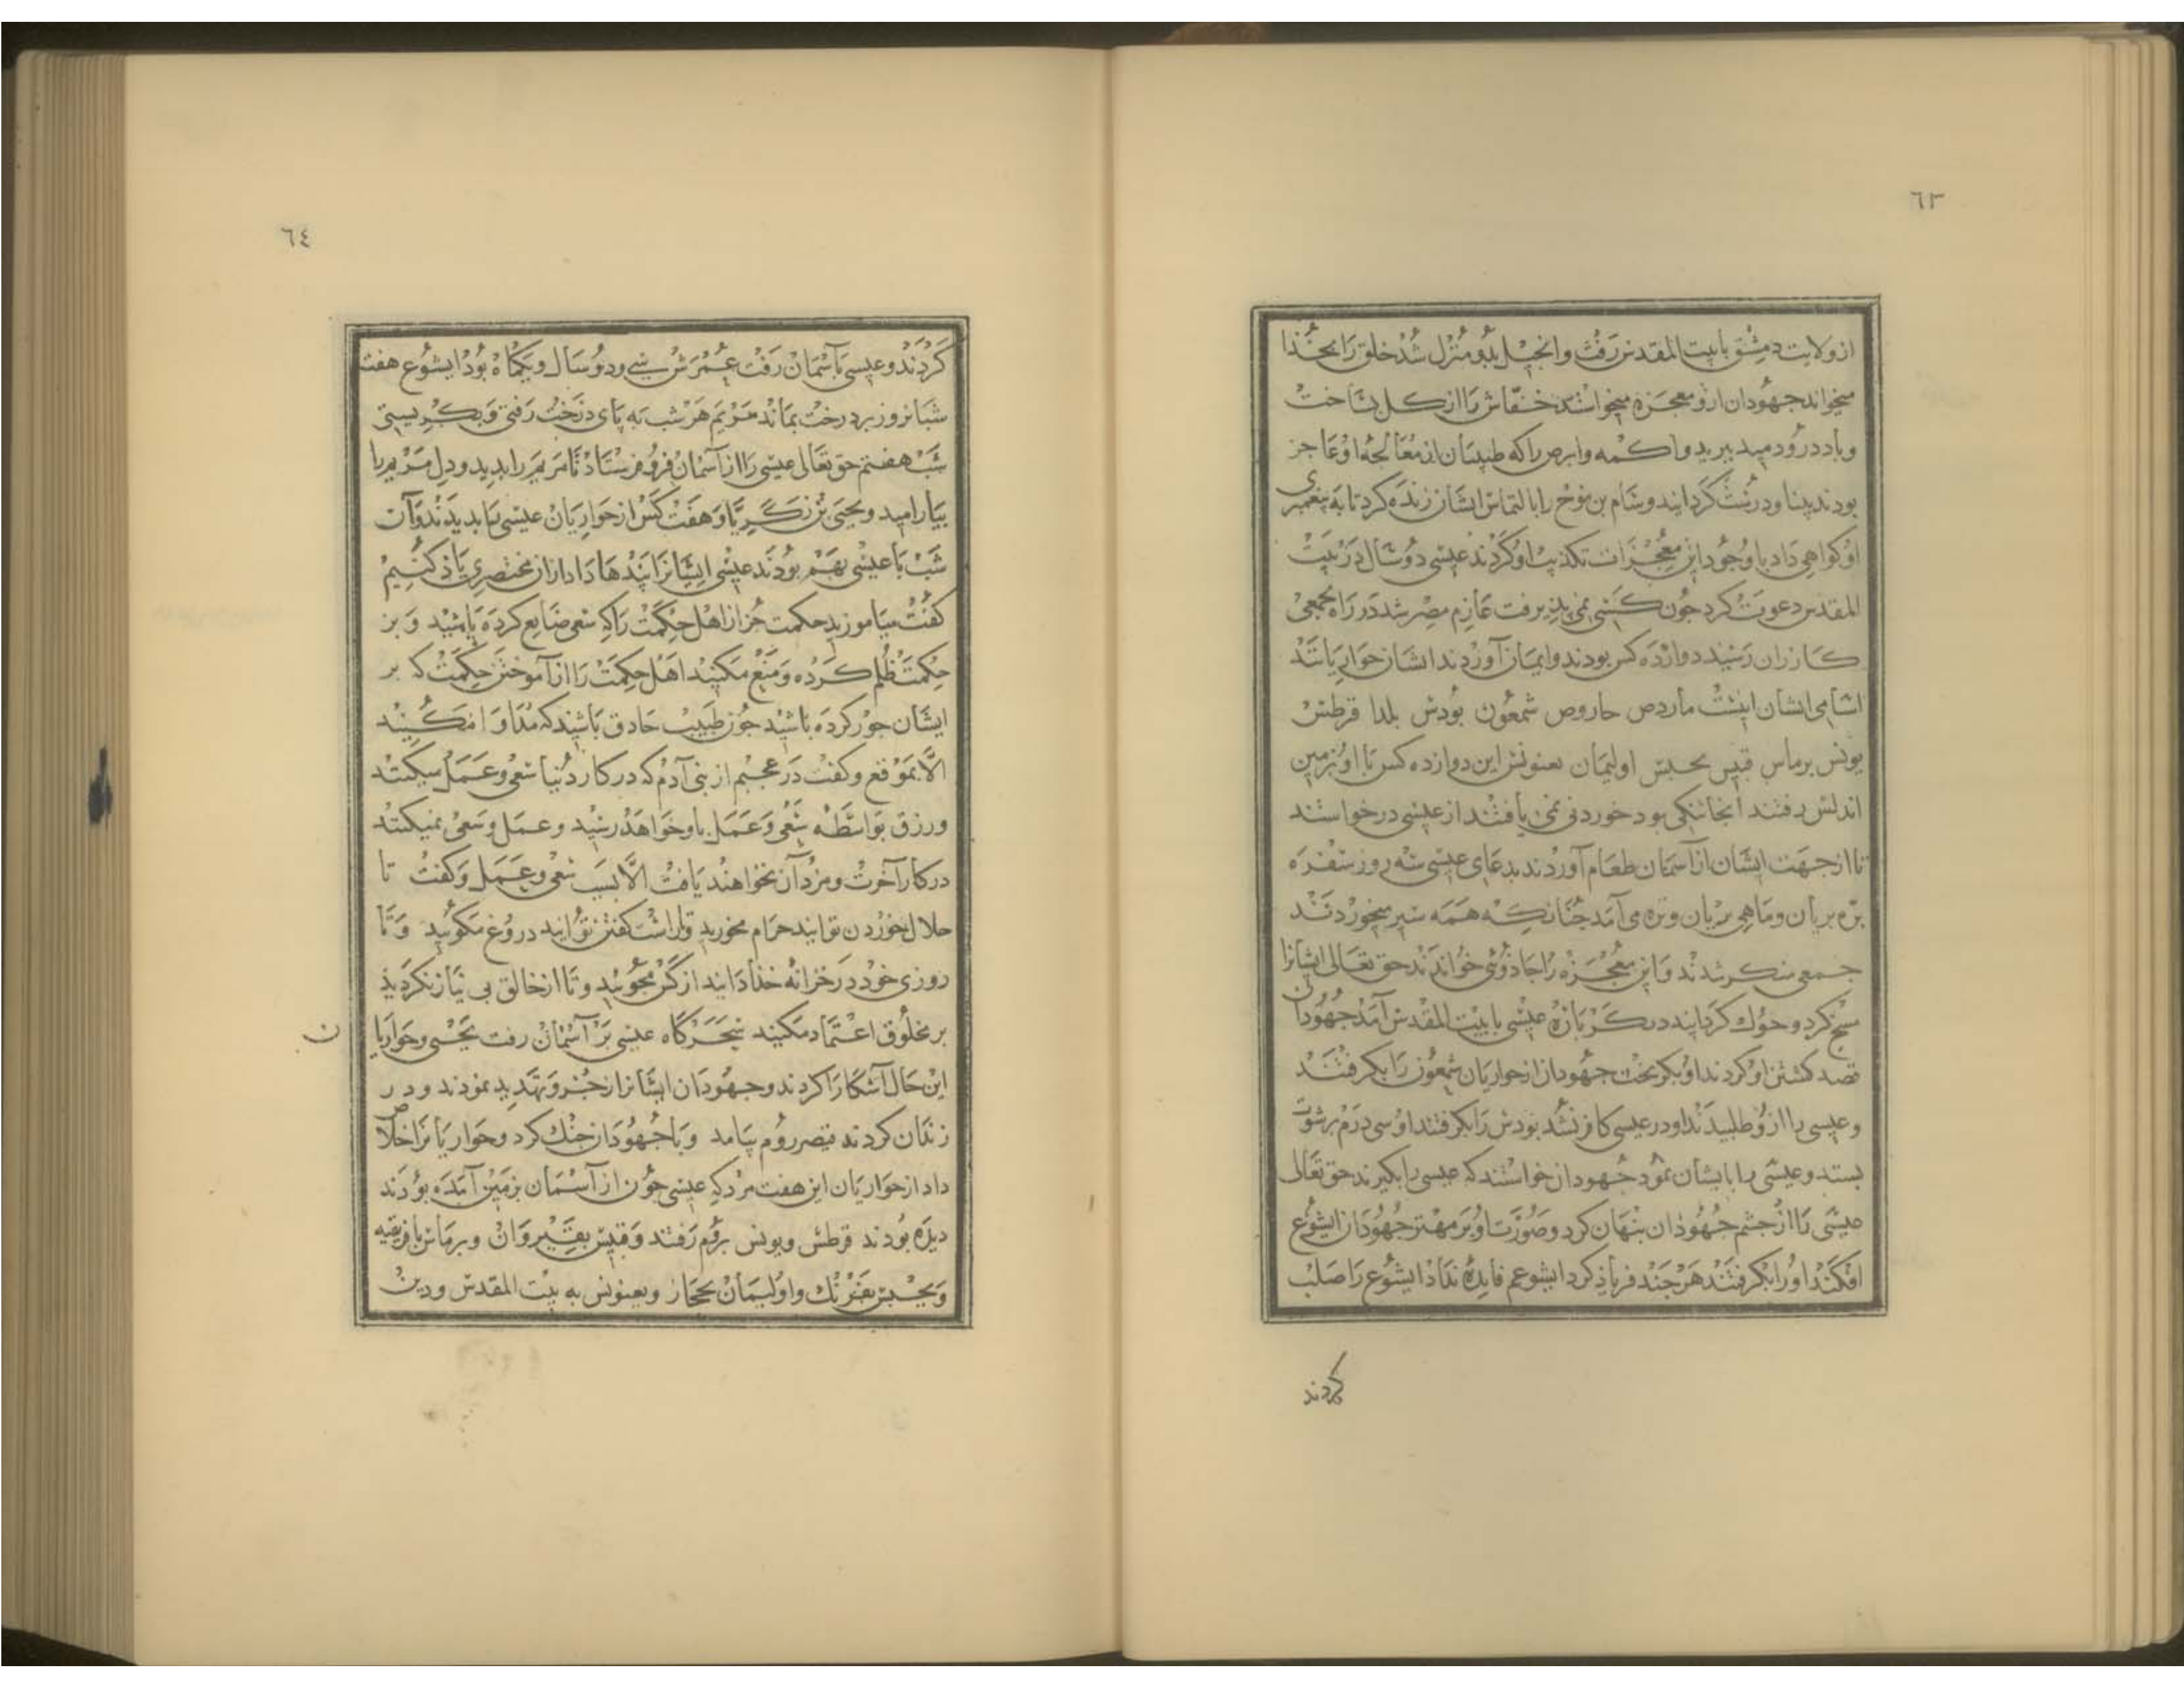 ٦٣
از ولایت دمشق بابیت المقدس رفت و انجیل بدو منزل شد خلق را بخذا
میخواند جهودان ازو معجزه میخواستند خفّاش را از کل بساخت
و باد درو دمید بپرید و اکمه و ابرص را که طبیبان از معالجهٔ او عاجز
بودند بینا و درست کردانید و سام بن نوح را بالتماس ایشان زنده کرد تا به پیغمبری
او کواهی داد با وجود این معجزات تکذیب او کردند عیسی دو سال در بیت
المقدس دعوت کرد جون کسی نمی پذیرفت عازم مصر شد در راه بجمعی
کازران رسید دوازده کس بودند و ایمان آوردند ایشان حواریانند
اسامی ایشان اینست ماردص حاروص شمعون بودس بلدا قرطس
یونس برماس قیس یحبس اولیمان یعنونس این دوازده کس با او بزمین
اندلس رفتند آنجا تنکی بود خوردنی نمی یافتند از عیسی درخواستند
تا از جهت ایشان از آسمان طعام آوردند بدعای عیسی سه روز سفره
برّه بریان و ماهی بریان و تره می آمد جنانکه همه سیر میخوردند
جمعی منکر شدند و این معجزه را جاذوئی خواندند حق تعالی ایشانرا
مسخ کرد و خوک کردانید دیکر باره عیسی بابیت المقدس آمد جهودان
قصد کشتن او کردند او بکریخت جهودان از حواریان شمعون را بکرفتند
و عیسی را ازو طلبیدند او در عیسی کافر نشد بودس را بکرفتند او سی درم برشوت
بستد و عیسی را بایشان نمود جهودان خواستند که عیسی را بکیرند حق تعالی
عیسی را از جشم جهوذان بنهان کرد و صورت او بر مهتر جهودان ایشوع
افکند او را بکرفتند هر جند فریاذ کرد ایشوعم فایده نداذ ایشوع را صلب
کردند
٦٤
کردند و عیسی بآسمان رفت عمرش سی و دو سال و یکماه بود ایشوع هفت
شبانروز بر درخت بماند مریم هر شب به پای درخت رفتی و بکریستی
شب هفتم حق تعالی عیسی را از آسمان فرو فرستاد تا مریم را بدید و دل مریم را
بیارامید و یحیی بن زکریّا و هفت کس از حواریان عیسی را بدیدند و آن
شب با عیسی بهم بودند عیسی ایشانرا پندها داد از آن مختصری یاذ کنیم
کفت میاموزید حکمت جز از اهل حکمت را که سعی ضایع کرده باشید و بر
حکمت ظلم کرده و منع مکنید اهل حکمت را از آموختن حکمت که بر
ایشان جور کرده باشید جون طبیب حاذق باشید که مداوا نکنید
الّا بموقع و کفت در عجبم از بنی آدم که در کار دنیا سعی و عمل میکنند
و رزق بواسطه سعی و عمل باو خواهد رسید و عمل و سعی نمیکنند
در کار آخرت و مزد آن نخواهند یافت الّا بسبب سعی و عمل و کفت تا
حلال خوردن توانید حرام مخورید و تا راست کفتن توانید دروغ مکوئید و تا
روزی خود در خزانه خذا دانید از کس مجوئید و تا از خالق بی نیاز نکردید
بر مخلوق اعتماد مکنید سحرکاه عیسی بر آسمان رفت یحیی و حواریان
این حال آشکارا کردند و جهودان ایشانرا زجر و تهدید نمودند و در
زندان کردند قیصر روم بیامد و با جهودان جنك کرد و حواریانرا خلاص
داد از حواریان این هفت مرد که عیسی جون از آسمان بزمین آمده بود
دیده بودند قرطس و یونس بروم رفتند و قیس بقیروان و برماس بافریقیه
و یحبس و اولیمان بحجاز و یعنونس به بیت المقدس و درین